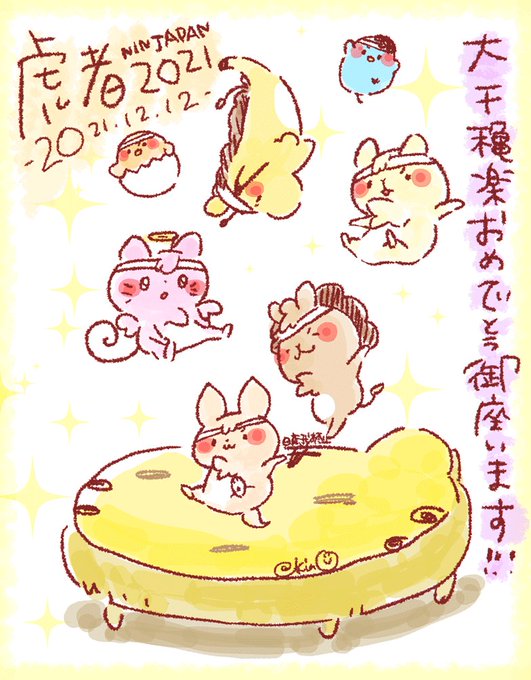 虎者
NINJAPAN
2021
-2021.12.12.-
大千穐楽おめでとう御座います!!!